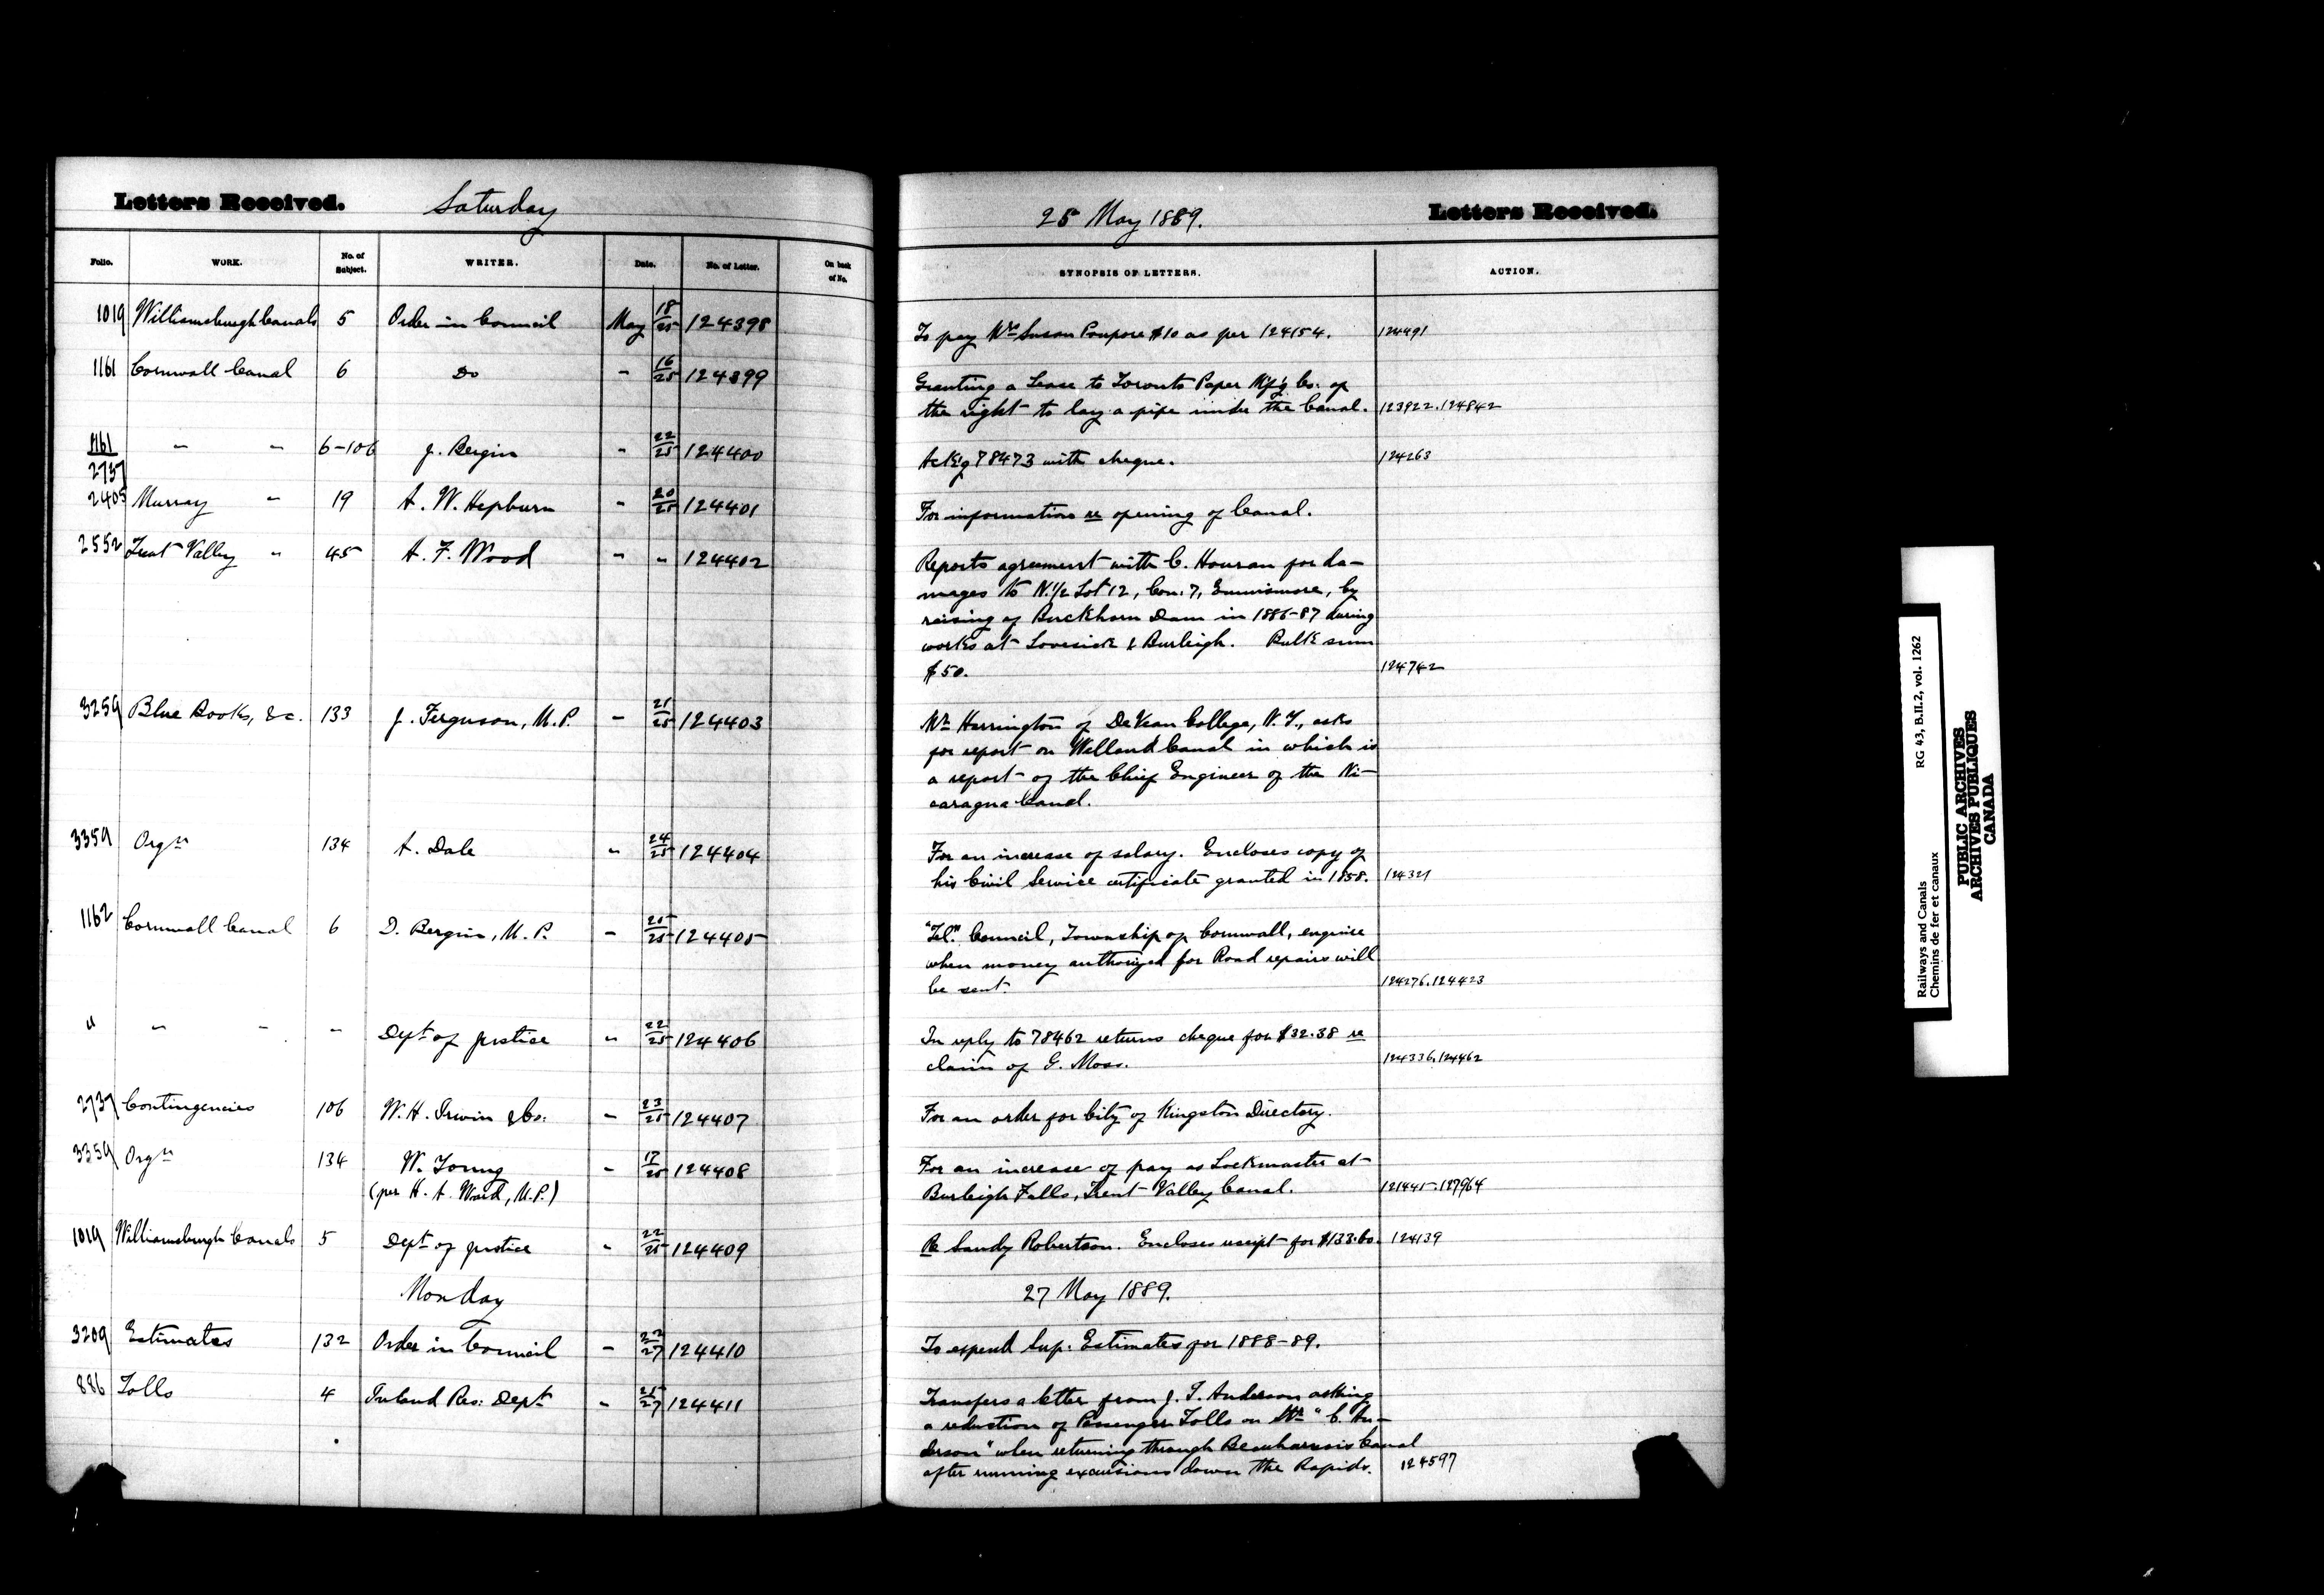 Letters Received. Saturday
Folio. WORK. No. of Subject. WRITER. Date. No. of Letter. On back of No.
1019 Williamsburgh Canals 5 Order in Council May 18/25 124398
1161 Cornwall Canal 6 Do - 16/25 124399
1161 - - 6-106 J. Bergin - 22/25 124400
2737
2405 Murray - 19 A. W. Hepburn - 20/25 124401
2552 Trent Valley " 45 A. F. Wood - " 124402
3259 Blue Books, &c. 133 J. Ferguson, M.P. - 21/25 124403
3359 Orgn 134 A. Dale " 24/25 124404
1162 Cornwall Canal 6 D. Bergin, M.P. - 25/25 124405
" - - - Dept of Justice " 22/25 124406
2737 Contingencies 106 W. H. Irwin & Co. - 23/25 124407
3359 Orgn 134 W. Young - 17/25 124408
(per H. A. Ward, M.P.)
1019 Williamsburgh Canals 5 Dept of Justice - 22/25 124409
Monday
3209 Estimates 132 Order in Council - 22/27 124410
886 Tolls 4 Inland Rev. Dept - 25/27 124411
25 May 1889. Letters Received.
SYNOPSIS OF LETTERS. ACTION.
To pay Mrs Susan Poupore $10 as per 124154. 124491
Granting a Lease to Toronto Paper M'f'g Co. of
the right to lay a pipe under the Canal. 123922.124842
Ack'g 78473 with cheque. 124263
For information re opening of Canal.
Reports agreement with C. Houran for da-
mages to N. 1/2 Lot 12, Con. 7, Ennismore, by
raising of Buckhorn Dam in 1886-87 during
works at Lovesick & Burleigh. Bulk sum
$50. 124742
Mr Harrington of De Veau College, N. Y., asks
for report on Welland Canal in which is
a report of the Chief Engineer of the Ni-
caragua Canal.
For an increase of salary. Encloses copy of
his Civil Service certificate granted in 1858. 124321
"Tel." Council, Township of Cornwall, enquire
when money authorized for Road repairs will
be sent. 124276.124423
In reply to 78462 returns cheque for $32.38 re
claim of G. Moss. 124336.124462
For an order for City of Kingston Directory.
For an increase of pay as Lockmaster at
Burleigh Falls, Trent Valley Canal. 121445.127964
Re Sandy Robertson. Encloses receipt for $133.60. 124139
27 May 1889.
To expend Sup. Estimates for 1888-89.
Transfers a letter from J. T. Anderson asking
a reduction of Passenger Tolls on Str "C. An-
derson" when returning through Beauharnois Canal
after running excursions down the Rapids. 124597
Railways and Canals RG 43, B.II.2, vol. 1262
Chemins de fer et canaux
PUBLIC ARCHIVES
ARCHIVES PUBLIQUES
CANADA